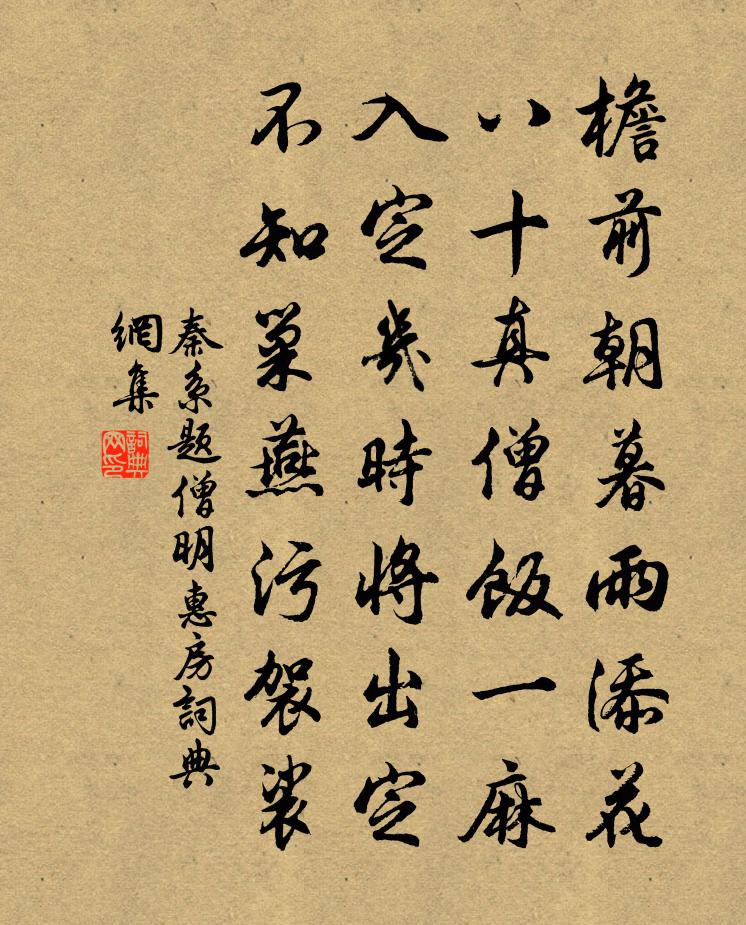 檐前朝暮雨添花
八十真僧飯一麻
入定幾時將出定
不知巢燕污袈裟
秦系題僧明惠房詞典
網集
詞典網印